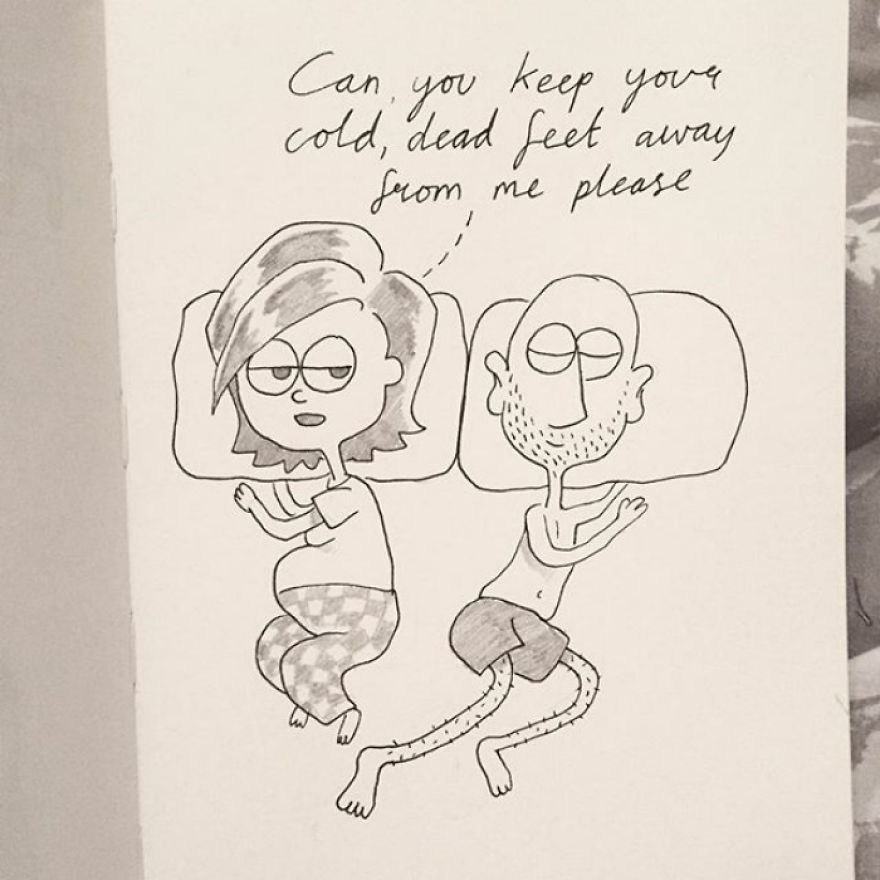 Can you keep your
cold, dead feet away
from me please